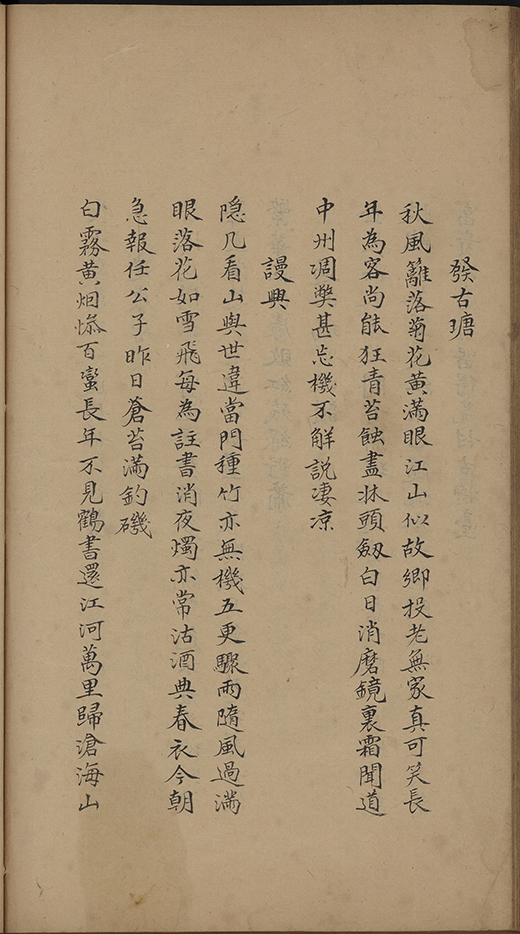 發古瑭
秋風籬落菊花黃滿眼江山似故鄉投老無家真可笑長
年為客尚能狂青苔蝕盡牀頭劔白日消磨鏡裏霜聞道
中州凋獘甚忘機不解説凄凉
謾興
隐几看山與世違當門種竹亦無機五更驟雨隨風過滿
眼落花如雪飛每為註書消夜燭亦常沽酒典春衣今朝
急報任公子昨日蒼苔滿釣磯
白霧黄烟恭百蠻長年不見鶴書還江河萬里歸滄海山